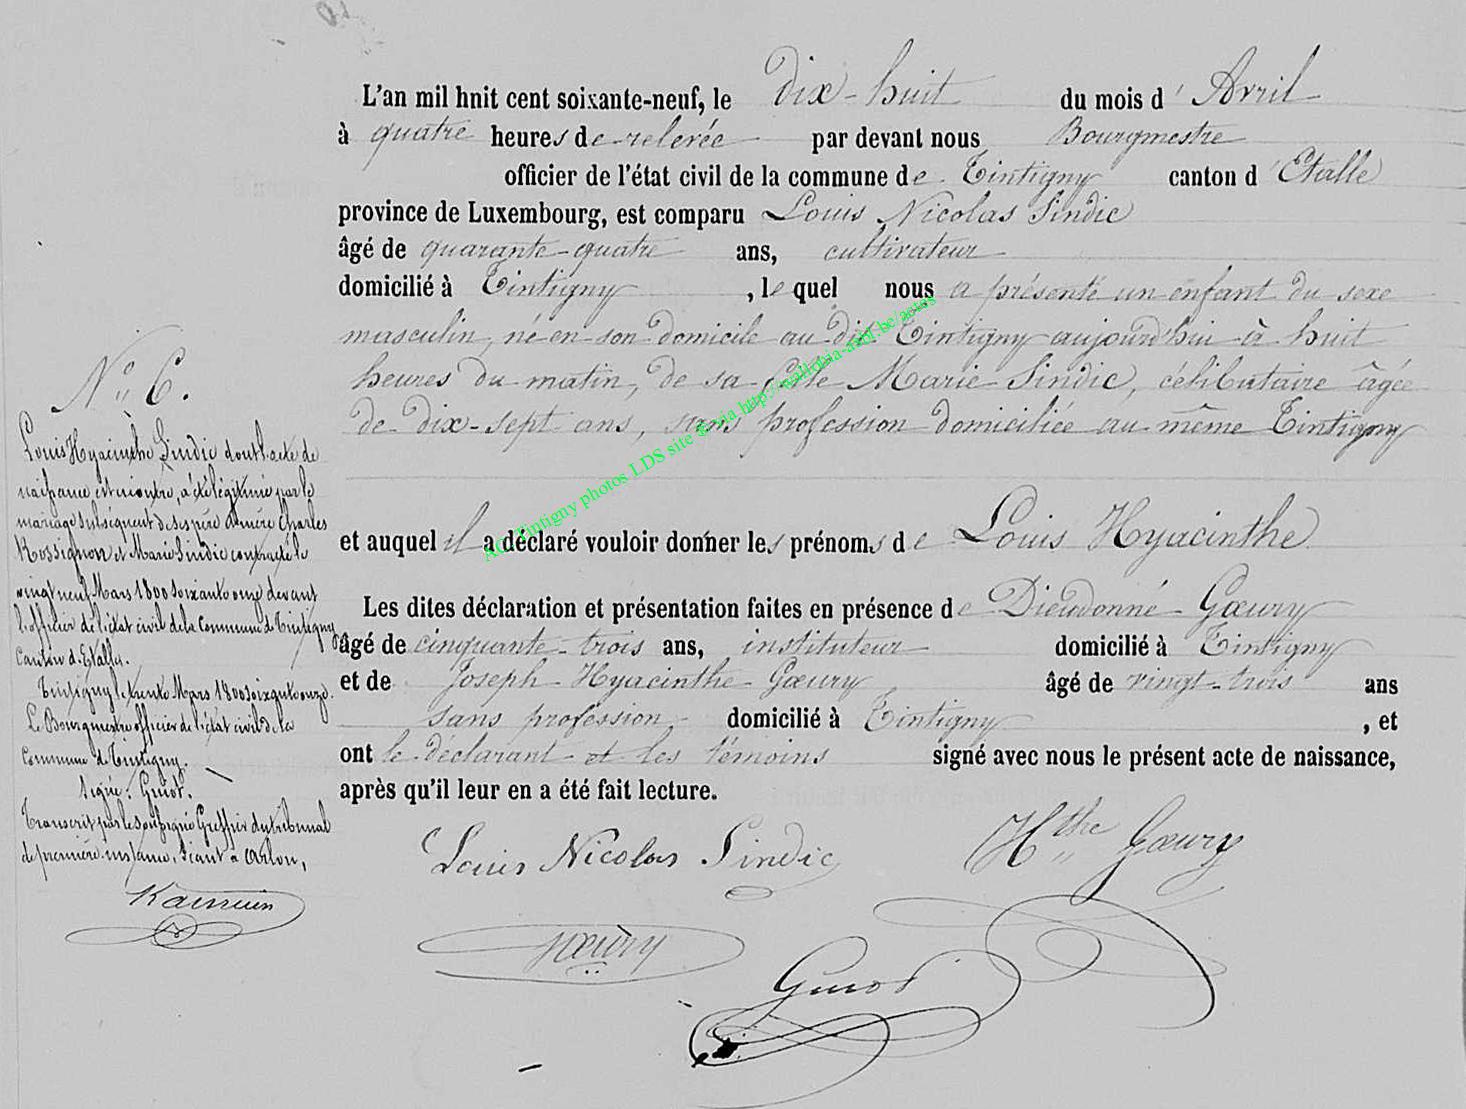 L'an mil huit cent soixante-neuf, le dix-huit du mois d'Avril
à quatre heures de relevée par devant nous Bourgmestre
officier de l'état civil de la commune de Tintigny canton d'Etalle
province de Luxembourg, est comparu Louis Nicolas Sindic
âgé de quarante-quatre ans, cultivateur
domicilié à Tintigny, le quel nous a présenté un enfant du sexe
masculin, né en son domicile au dit Tintigny aujourd'hui à huit
heures du matin, de sa fille Marie Sindic, célibataire âgée
de dix-sept ans, sans profession domiciliée au même Tintigny
et auquel il a déclaré vouloir donner les prénoms de Louis Hyacinthe
Les dites déclaration et présentation faites en présence de Dieudonné Gœury
âgé de cinquante-trois ans, instituteur domicilié à Tintigny
et de Joseph-Hyacinthe Gœury âgé de vingt-trois ans
sans profession, domicilié à Tintigny, et
ont le déclarant et les témoins signé avec nous le présent acte de naissance,
après qu'il leur en a été fait lecture.
Louis Nicolas Sindic
Hthe Gœury
Gœury
Guiot
N° 6.
Louis Hyacinthe Sindic dont l'acte de
naissance est ci contre, a été légitimé par le
mariage subséquent de ses père et mère Charles
Rossignon et Marie Sindic contracté le
vingt neuf Mars 1800 soixante onze devant
l'officier de l'état civil de la Commune de Tintigny
Canton d'Etalle.
Tintigny le trente Mars 1800 soixante onze.
Le Bourgmestre officier de l'état civil de la
Commune de Tintigny.
Signé. Guiot.
Transcrit par le soussigné Greffier du tribunal
de première instance, séant à Arlon,
AC Tintigny photos LDS site © via http://wallonia-asbl.be/actes